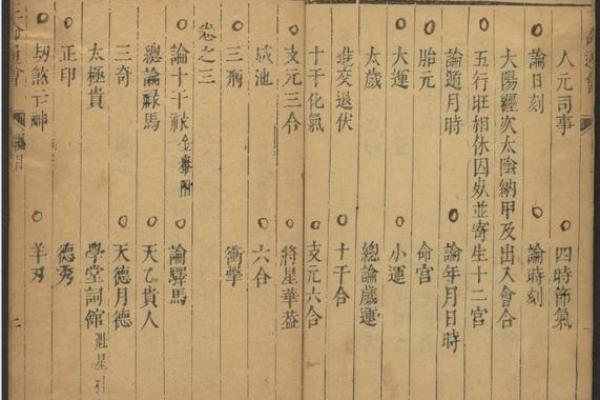 人元司事 四時節氣
論日刻 論時刻
大陽經次太陰納甲及出入會合
五行旺相休囚死並寄生十二宮
論遁月時 論年月日時
胎元 命宮
大運 小運
太歲 總論歲運
進交退伏 十干合
十干化氣 支元六合
支元三合 將星華蓋
咸池 六合
三刑 衝擊
卷之三
論十干祿 金輿附 論驛馬
總論祿馬 天乙貴人
三奇 天德月德
太極貴 學堂詞館
正印 德秀
劫煞亡神 羊刃
三命通會 目 二